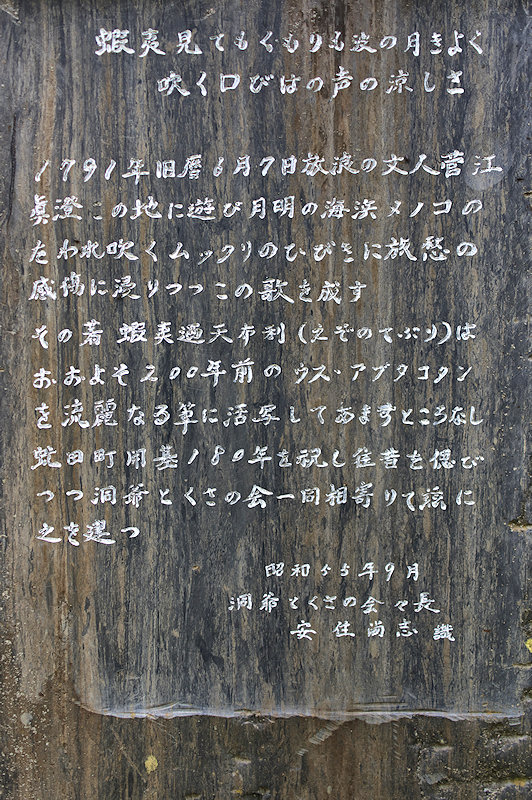 蝦夷見てもくもりも波の月きよく
吹く口びはの声の涼しさ
1791年旧暦6月7日放浪の文人菅江
眞澄この地に遊び月明の海浜メノコの
たわれ吹くムックリのひびきに旅愁の
感傷に浸りつつこの歌を成す
その著 蝦夷迺天布利(えぞのてぶり)は
おおよそ200年前のウス・アブタコタン
を流麗なる筆に活写してあますところなし
虻田町開基180年を祝し往昔を偲び
つつ洞爺とくさの会一同相寄りて茲に
之を建つ
昭和55年9月
洞爺とくさの会々長
安住尚志 識